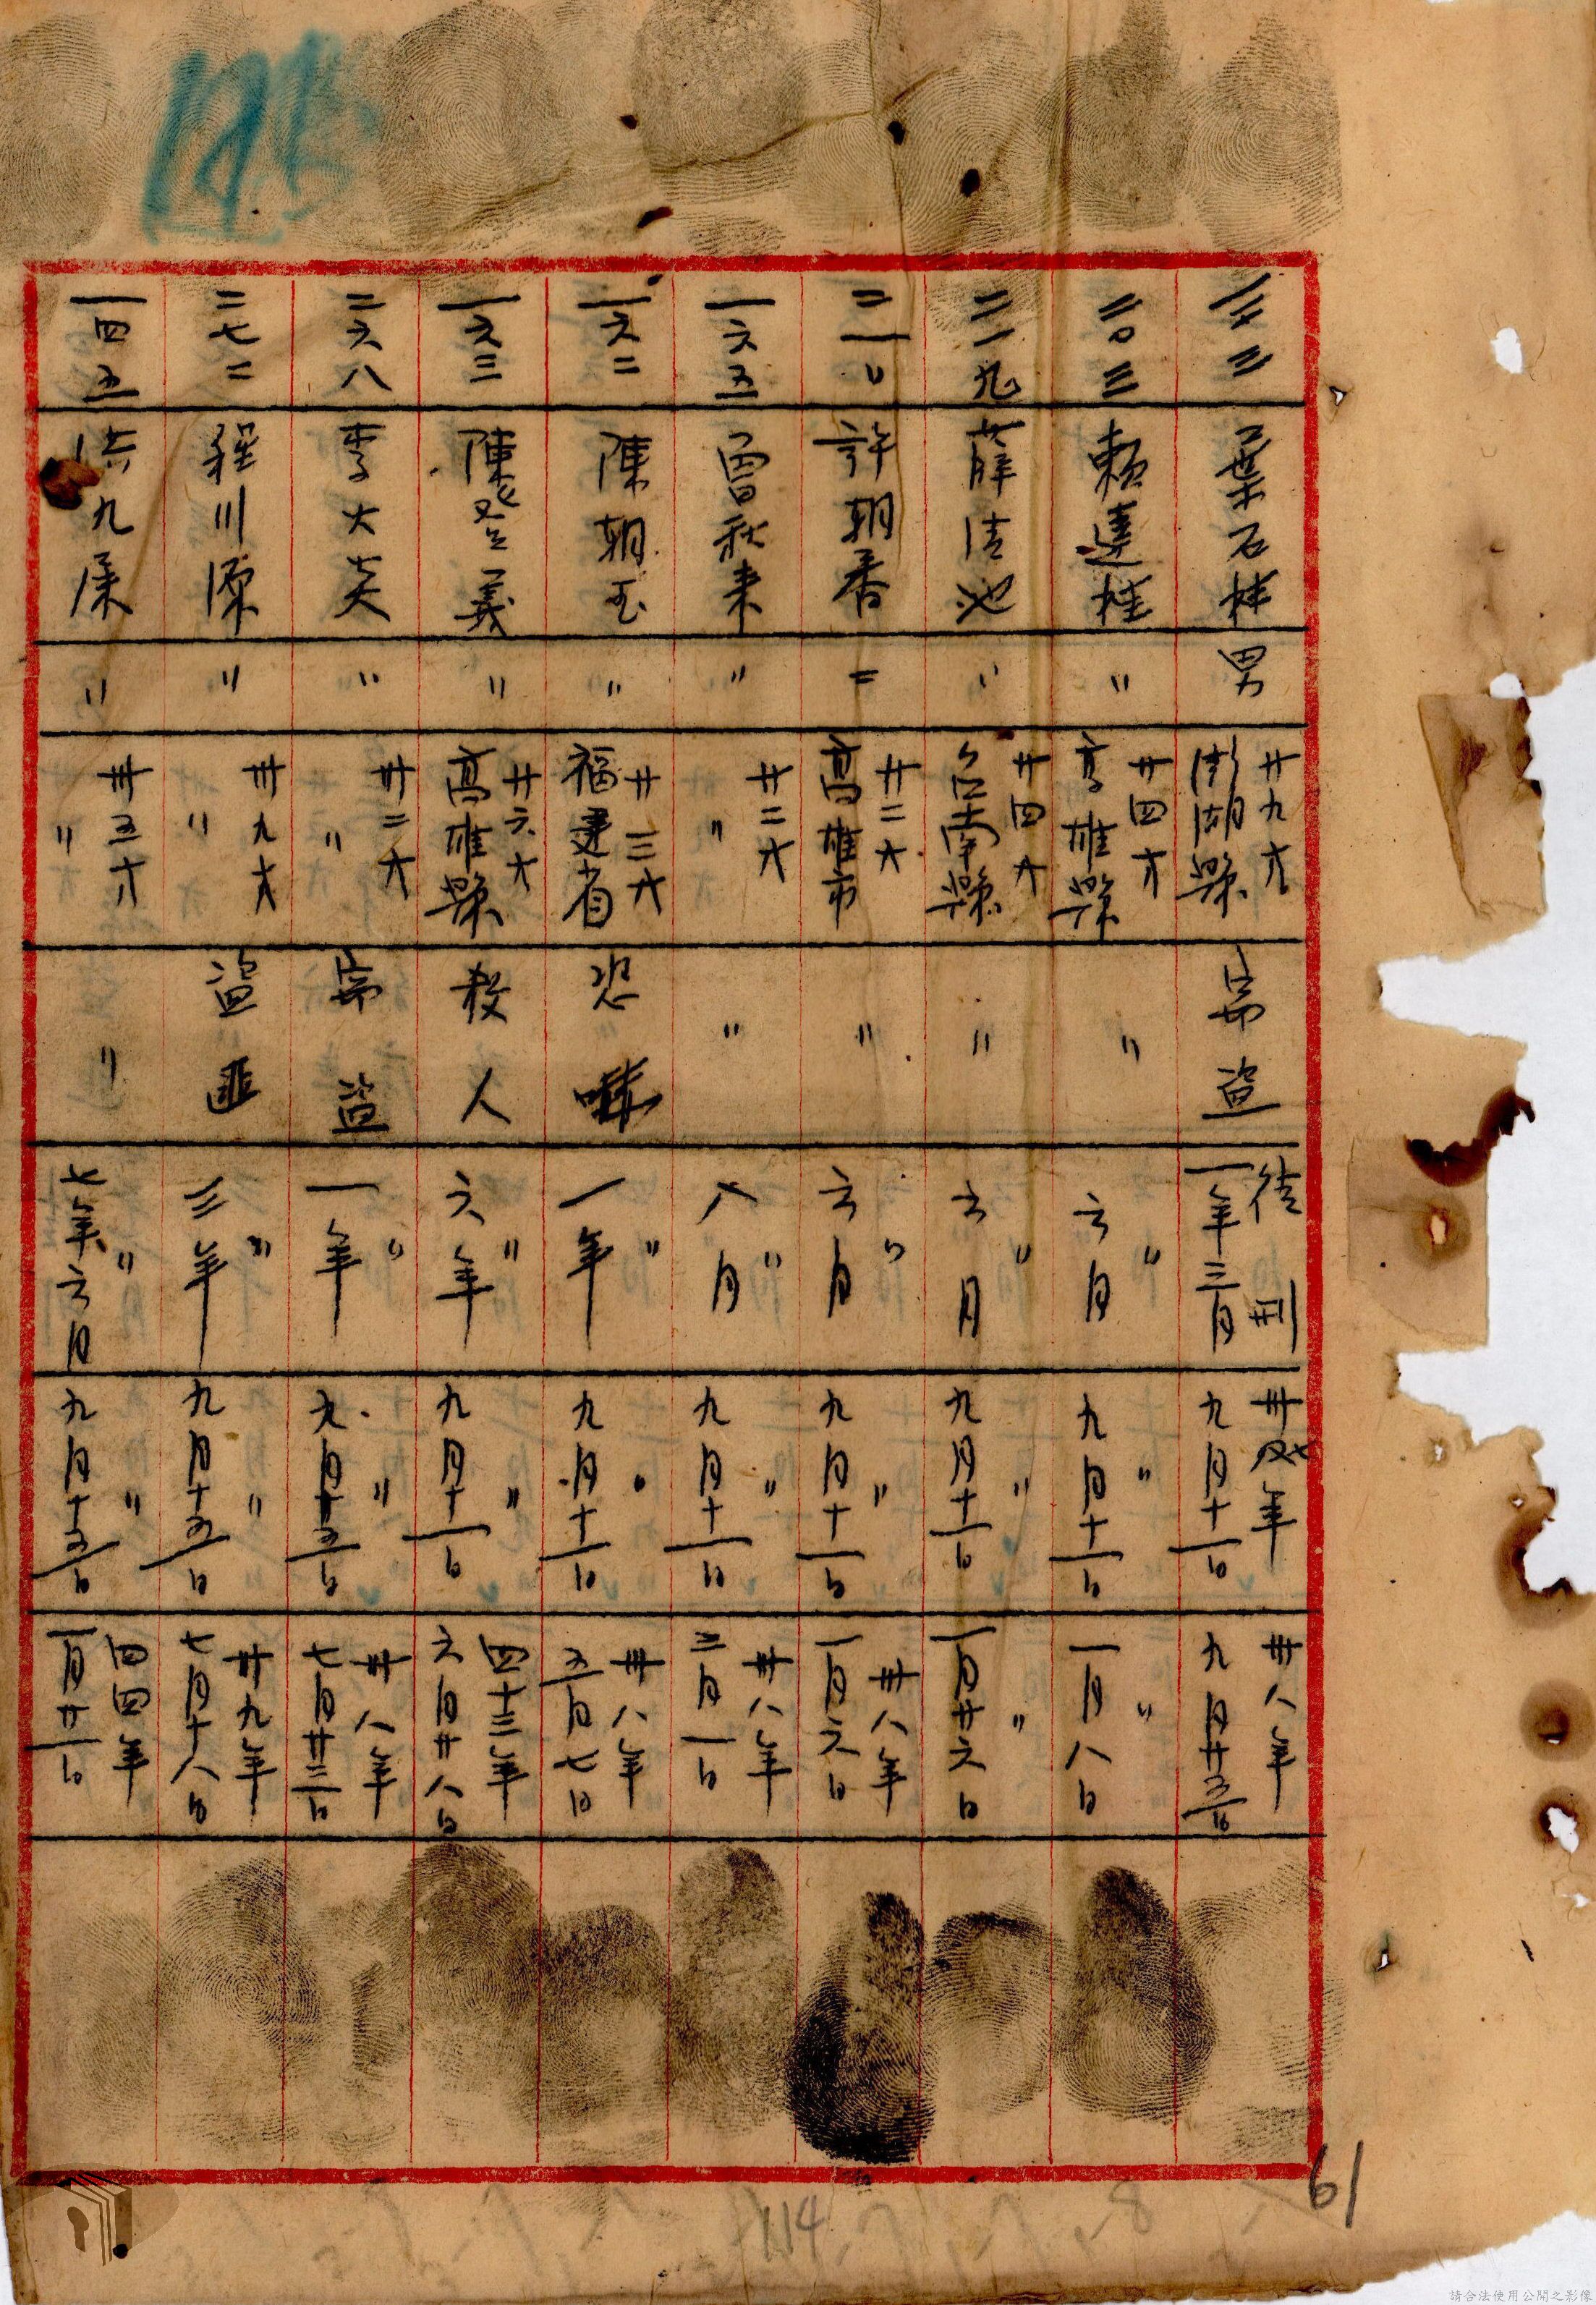 葉石桂 男 廿九才 澎湖縣 竊盜 徒刑一年三月 卅七年九月十一日 卅八年九月廿五日
二〇三 賴連桂 〃 廿四才 高雄縣 〃 〃六月 〃九月十一日 〃一月八日
二一九 薛清池 〃 廿四才 台南縣 〃 〃六月 〃九月十一日 〃一月廿六日
許朝香 〃 廿二才 高雄市 〃 〃六月 〃九月十一日 卅八年一月六日
一六五 曾秋來 〃 廿二才 〃 〃 〃八月 〃九月十一日 卅八年三月一日
一六二 陳朝玉 〃 廿三才 福建省 恐嚇 〃一年 〃九月十一日 卅八年五月七日
一六三 陳登義 〃 廿六才 高雄縣 殺人 〃六年 〃九月十一日 四十三年六月廿八日
二六八 李大炎 〃 廿二才 〃 竊盜 〃一年 〃九月十五日 卅八年七月廿三日
二七二 程川源 〃 卅九才 〃 盜匪 〃三年 〃九月十五日 卅九年七月十八日
一四五 洪九屎 〃 卅五才 〃 〃 〃七年六月 〃九月十五日 四四年一月廿一日
61
114
請合法使用公開之影像